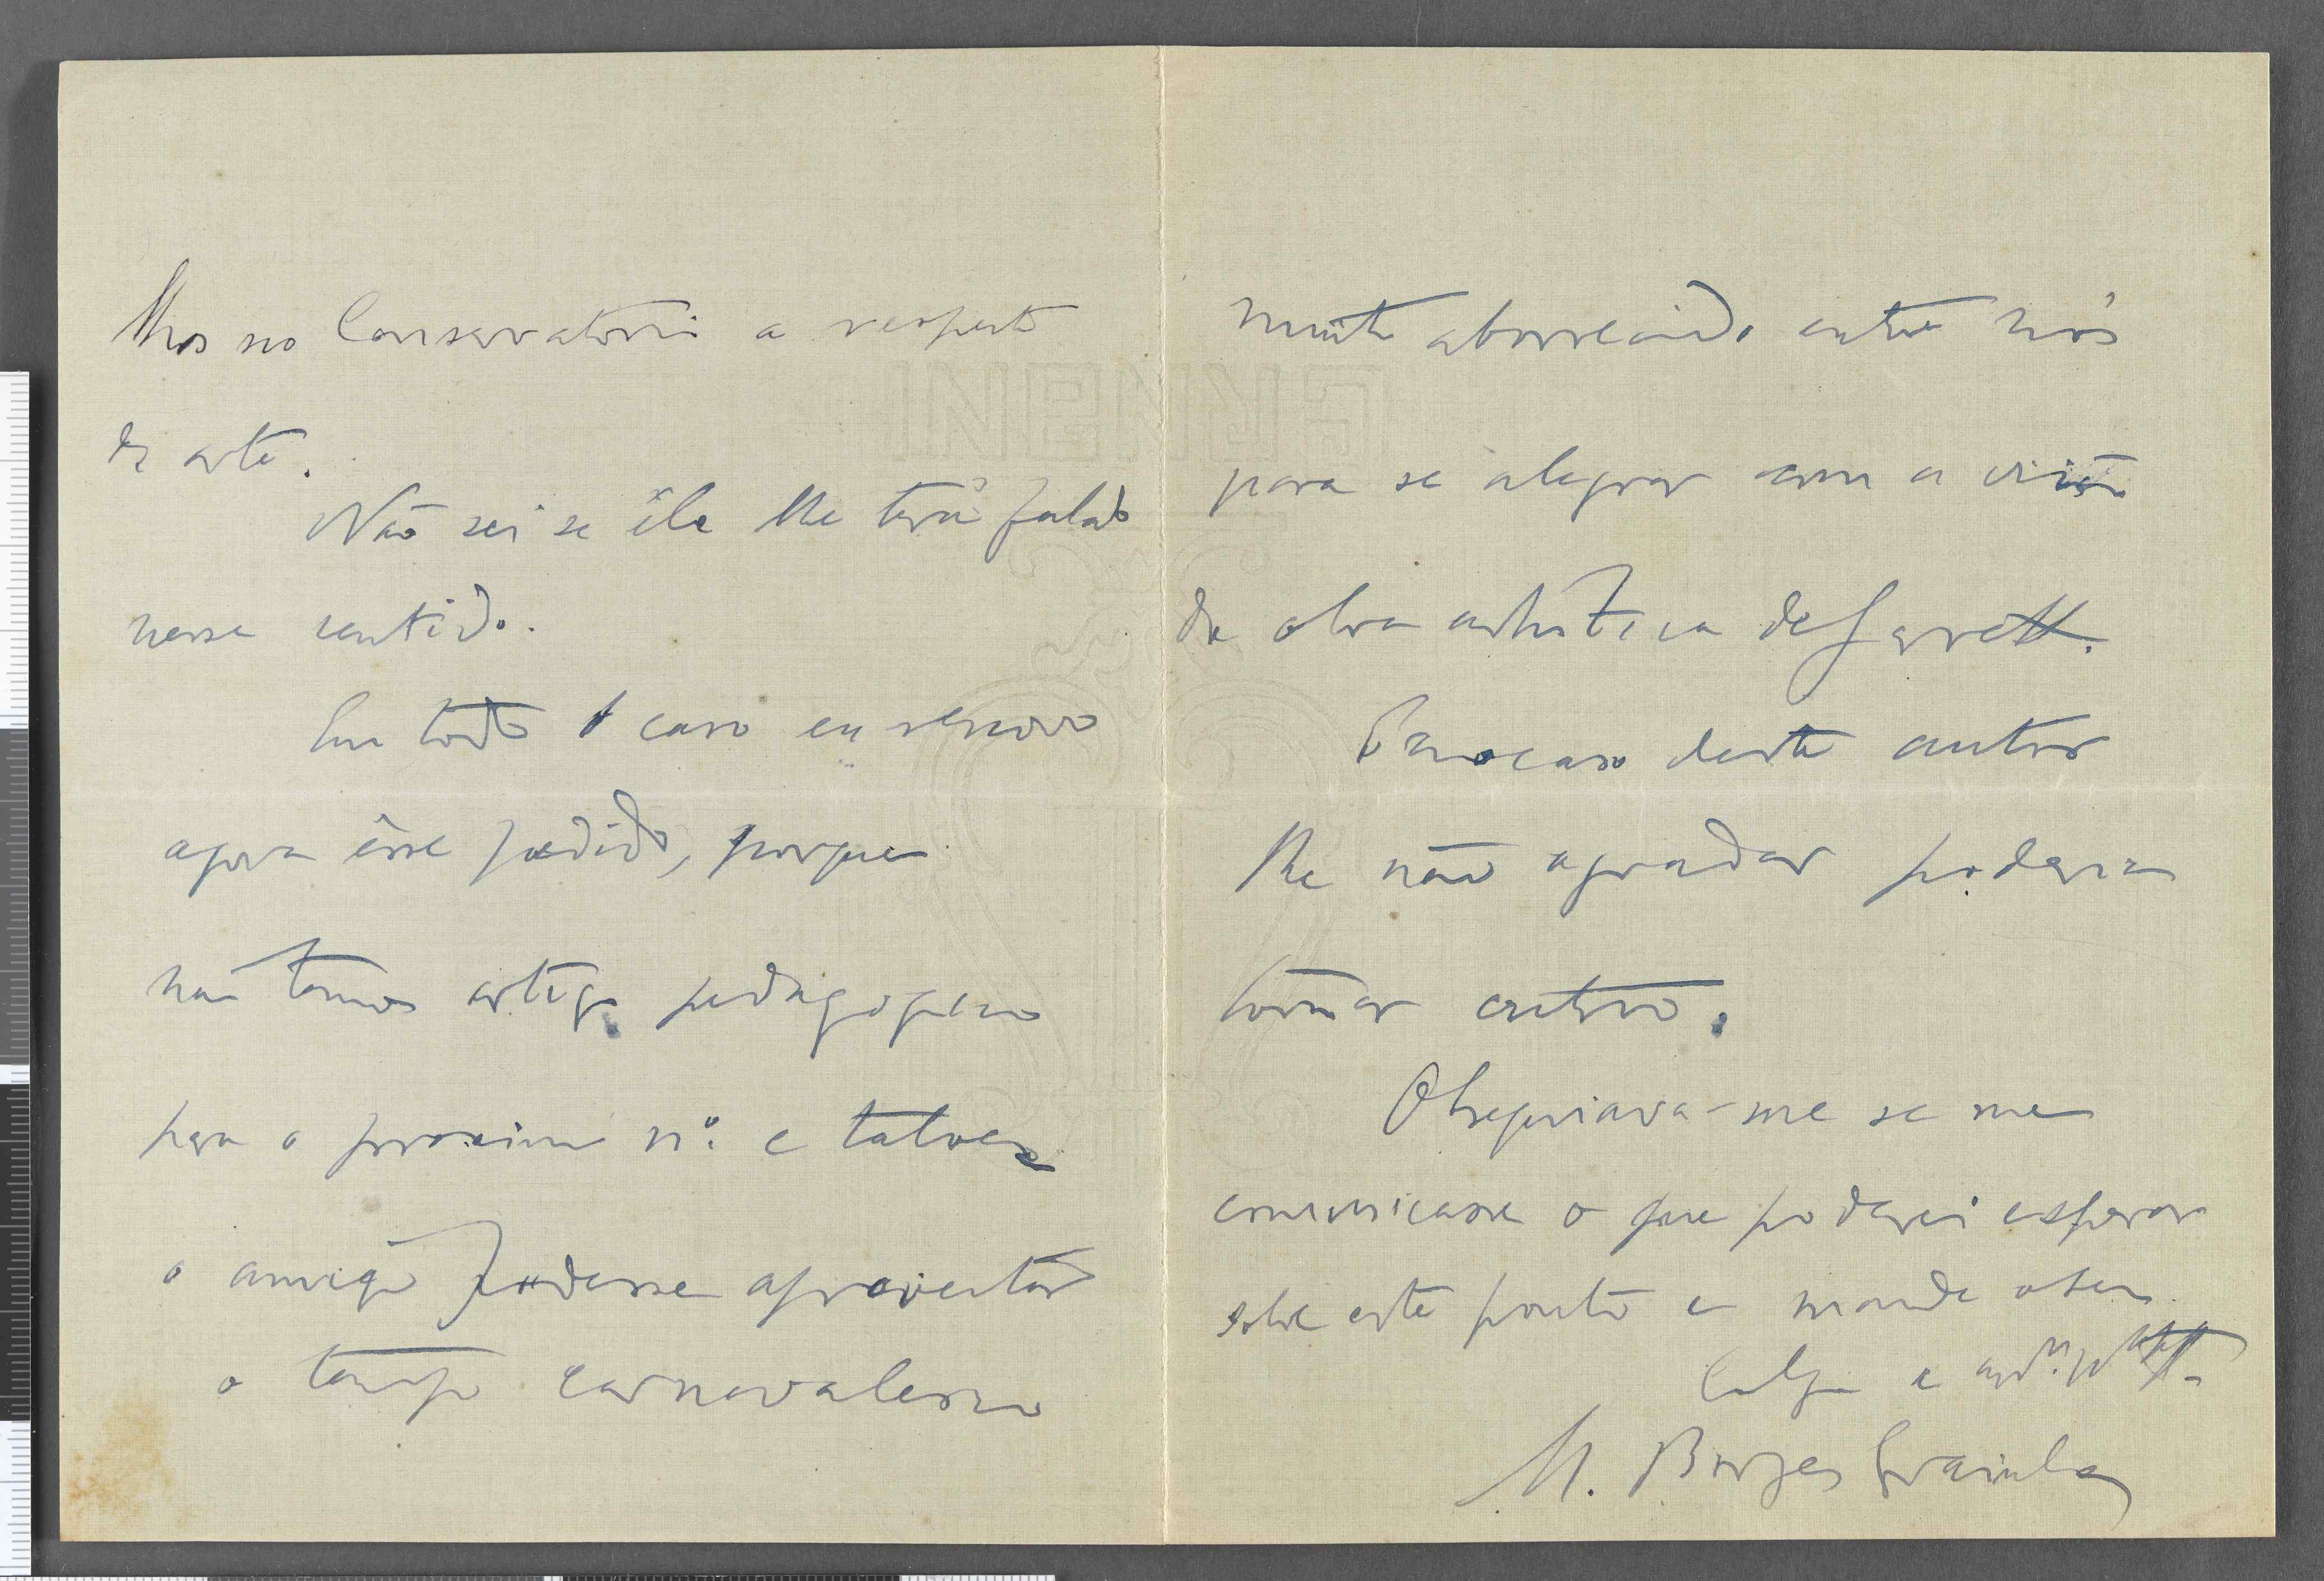 lhos no Conservatorio a respeito
de arte.
Não sei se êle lhe terá falado
nesse sentido.
Em todo o caso eu renovo
agora êsse pedido, porque
não temos artigo pedagogico
para o proximo nº. e talvez
o amigo pudesse aproveitar
o tempo carnavalesco
muito aborrecido entre nós
para se alegrar com a visão
da obra artistica de Garrett.
E no caso deste autor
lhe não agradar poderia
tomar outro.
Obsequiava-me se me
comunicasse o que poderei esperar
sobre este ponto e mande o seu
Colga e
M. Borges Grainha